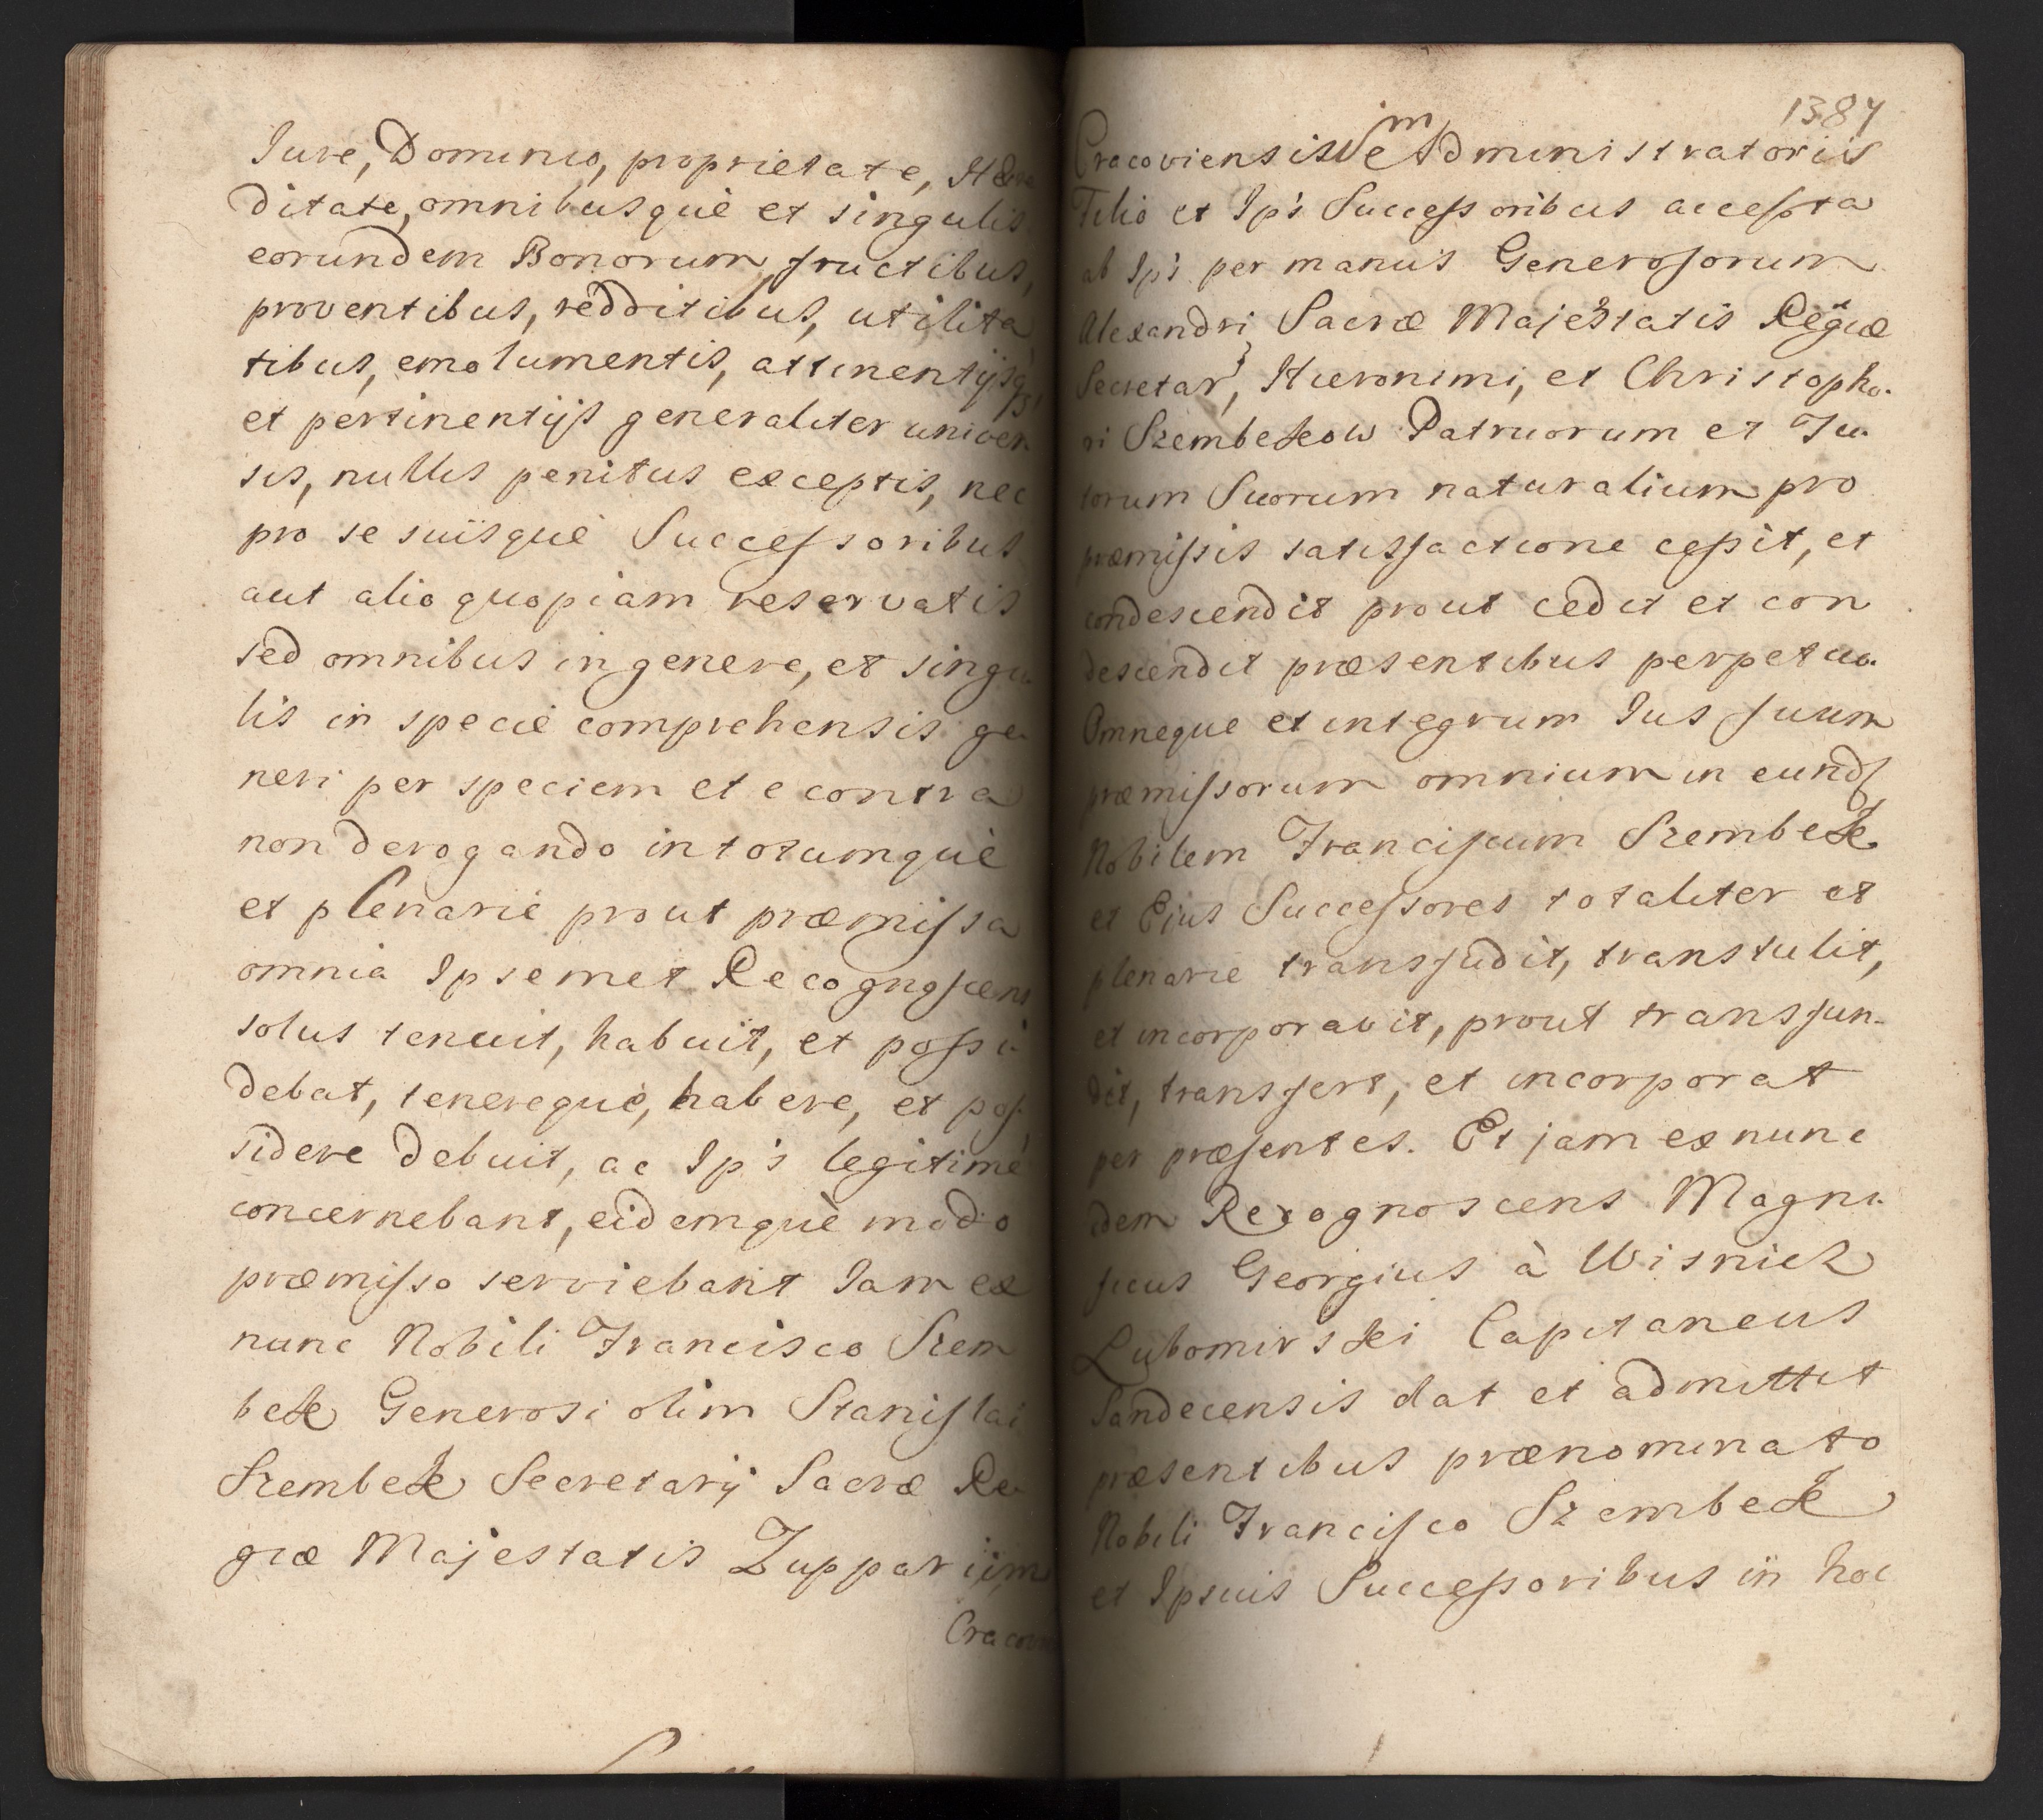 Iure, Dominio, proprietate, Hære
ditate, omnibusquè et singulis
eorundem Bonorum fructibus,
proventibus, redditibus, utilita
tibus, emolumentis, attinentijsq3,
et pertinentijs generaliter univer
sis, nullis penitus exceptis, nec
pro se suisquè Successoribus
aut alio quopiam reservatis
sed omnibus in genere, et singu
lis in specie comprehensis ge
neri per speciem et e contra
non derogando in totumquè
et plenariè prout præmissa
omnia Ipsemet Recognoscens
solus tenuit, habuit, et possi
debat, tenerequè, habere, et pos
sidere debuit, ac Ips legitimè
concernebant, eidemquè modo
præmisso serviebant Iam ex
nunc Nobili Francisco Szem
bek Generosi olim Stanislai
Szembek Secretarij Sacræ Re
giæ Majestatis Zuppariim
Cracovi
1387
Cracoviensium Administratoris
Filio et Ips Successoribus accepta
ab Ips per manus Generosorum
Alexandri Sacræ Majestatis Regiæ
Secretar, Hieronimi, et Christopho.
ri Szembekow Patruorum et Tu.
torum Suorum naturalium pro
præmissis satisfactione cessit, et
condescendit prout cedit et con
descendit præsentibus perpetuo.
Omneque et integrum Ius suum
præmissorum omnium in eund
Nobilem Franciscum Szembek
et Ejus Successores totaliter et
plenarie transfudit, transtulit,
et incorporavit, prout transfun-
dit, transfert, et incorporat
per præsentes. Et jam ex nunc
idem Recognoscens Magni.
ficus Georgius à Wisnicz
Lubomirski Capitaneus
Sandecensis dat et admittit
præsentibus prænominato
Nobili Francisco Szembek
et Ipsius Successoribus in hoc